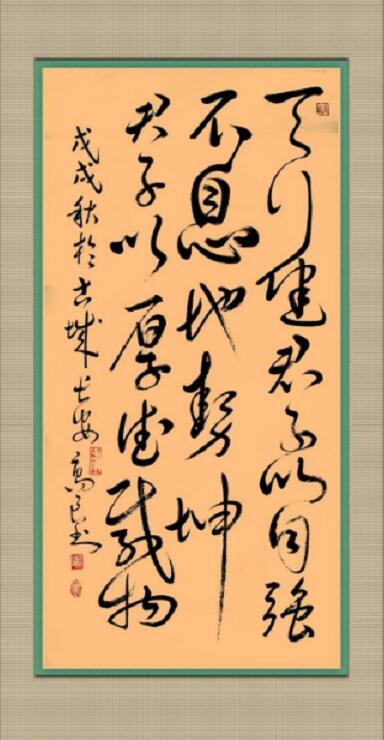 天行健君子以自强
不息地势坤
君子以厚德载物
戊戌秋於古城长安高